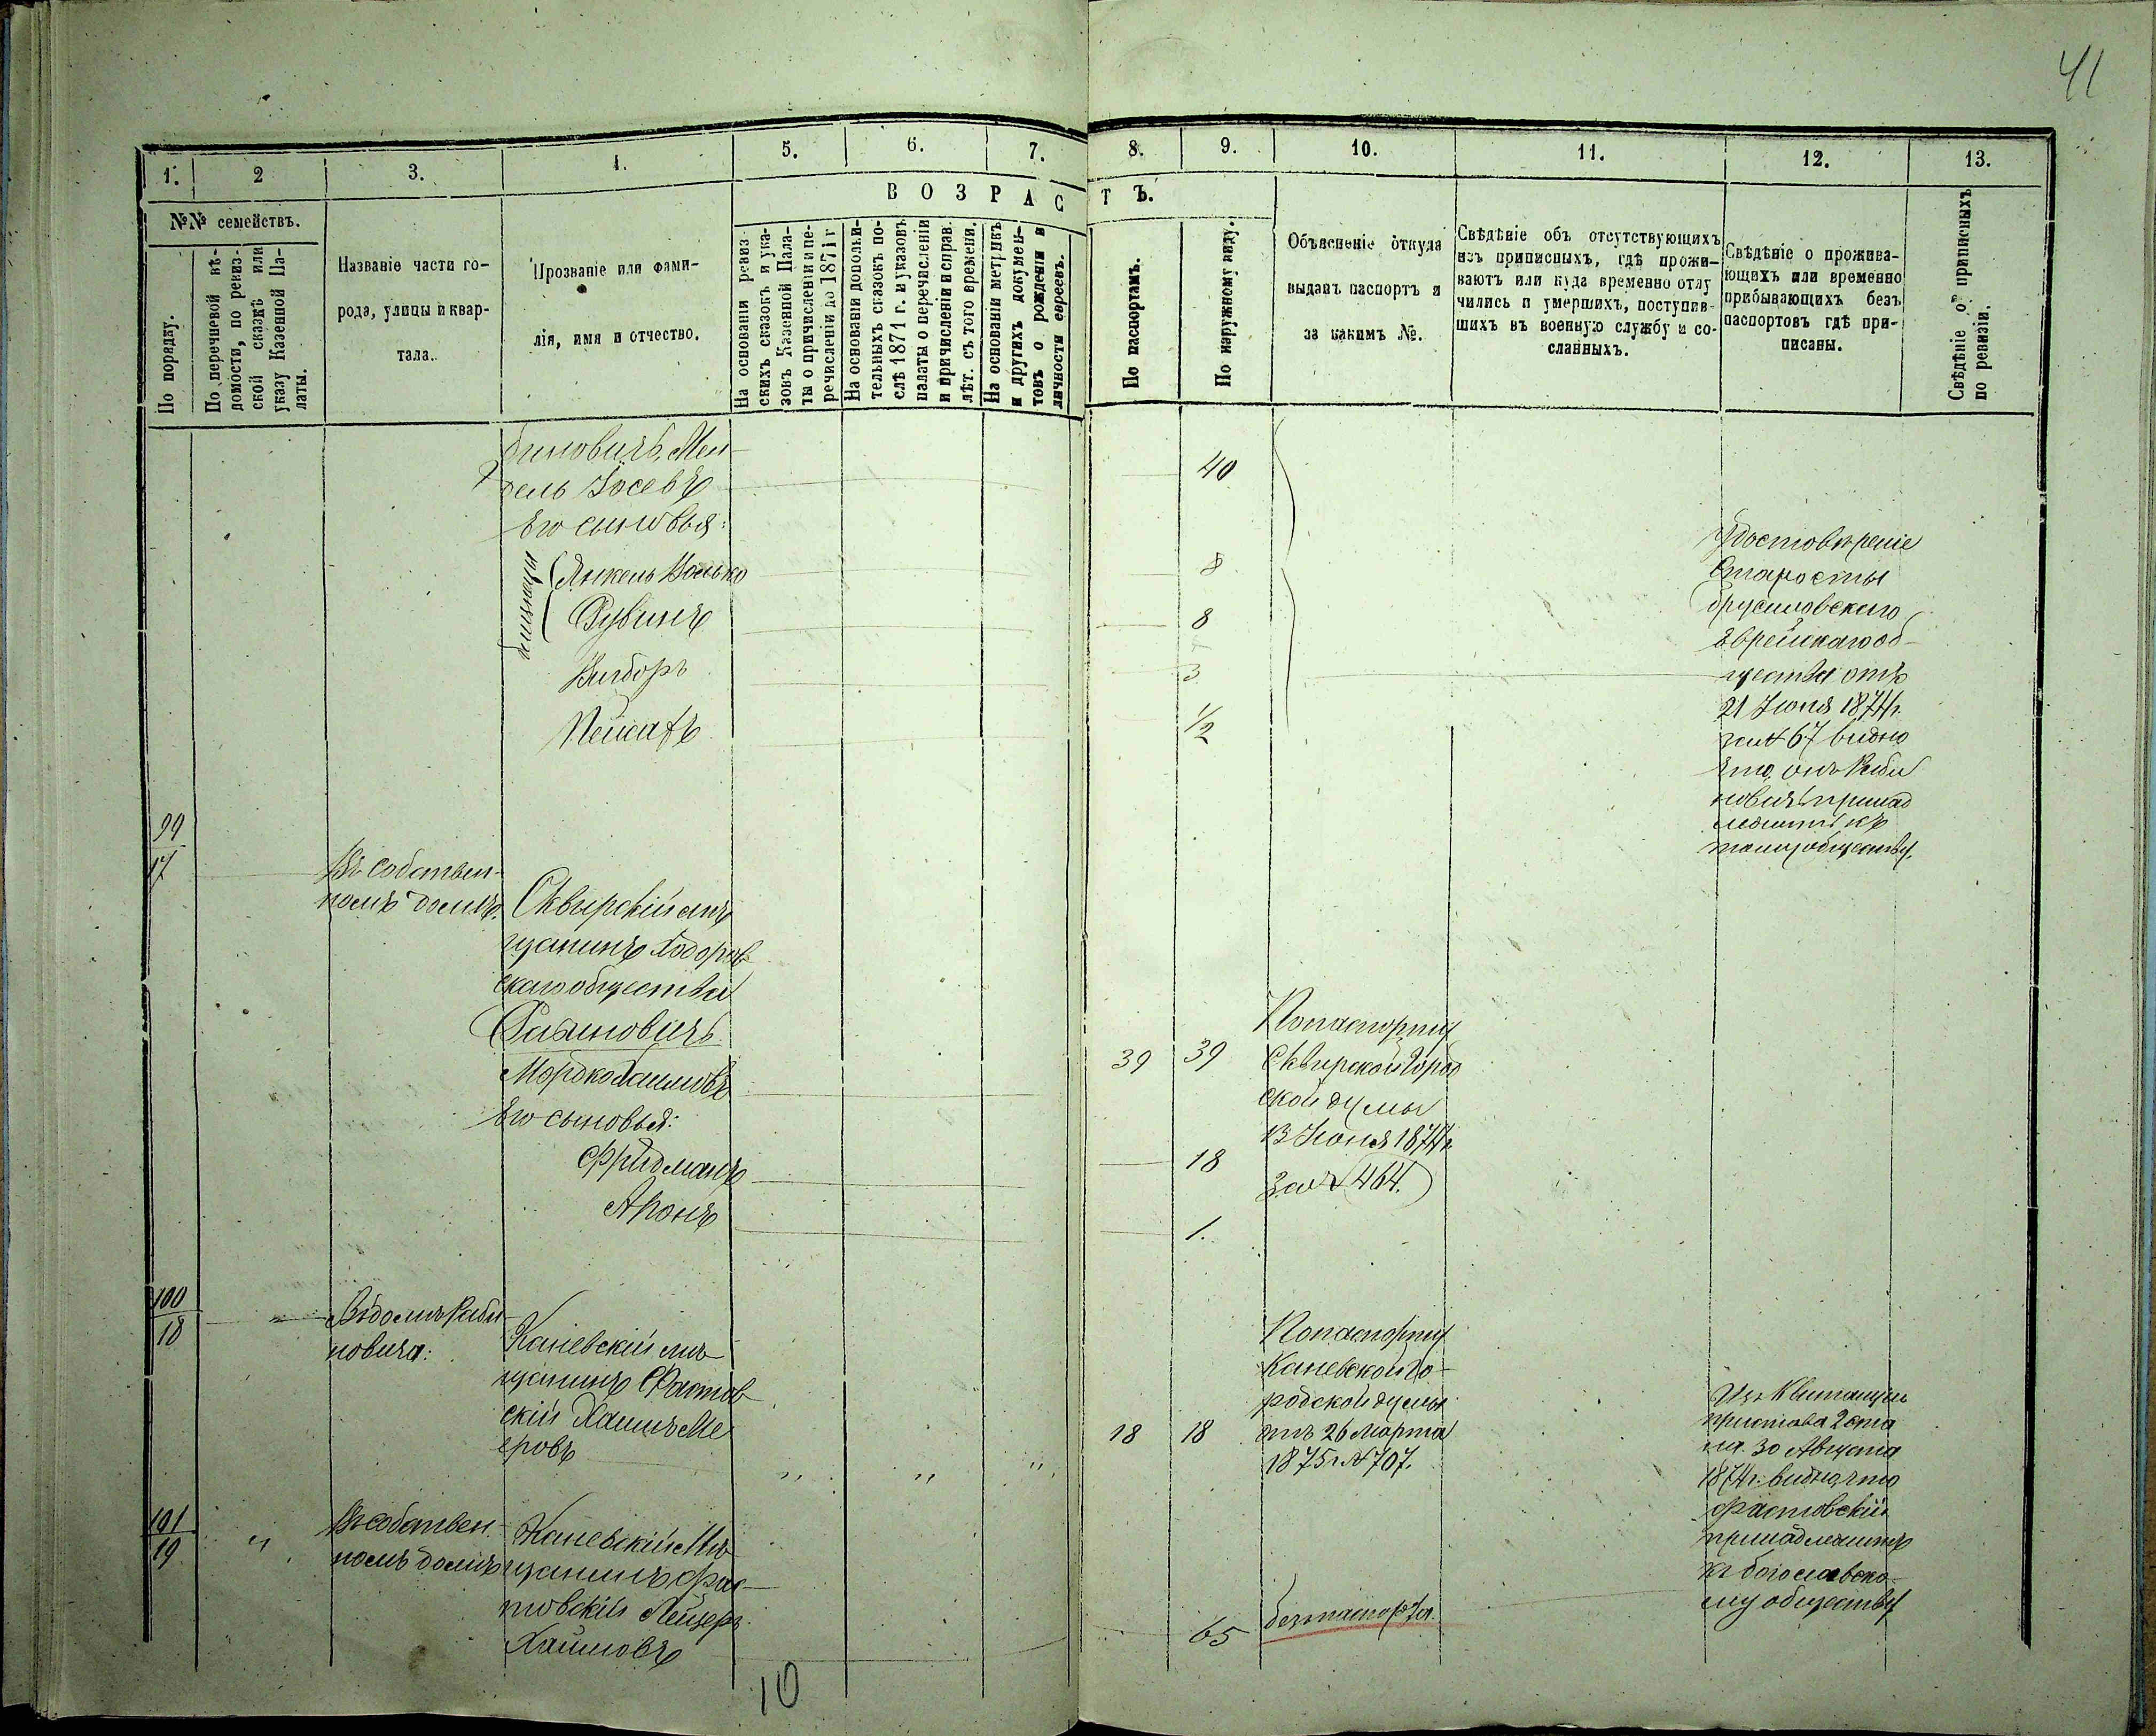 41
1. 2 3. 4. 5. 6. 7. 8. 9. 10. 11. 12. 13.
В О З Р А С Т Ъ.
№№ семействъ.
По порядку.
По перечневой вѣ-
домости, по ревиз-
ской сказкѣ или
указу Казенной Па-
латы.
Названіе части го-
рода, улицы и квар-
тала.
Прозваніе или фами-
лія, имя и отчество.
На основаніи ревиз-
скихъ сказокъ и ука-
зовъ Казенной Пала-
ты о причисленіи и пе-
речисленіи до 1871 г
На основаніи дополни-
тельныхъ сказокъ по-
слѣ 1871 г. и указовъ
палаты о перечисленіи
и причисленіи и справ.
лѣт. съ того времени.
На основаніи метрикъ
и другихъ докумен-
товъ о рожденіи и
личности евреевъ.
По паспортамъ.
По наружному виду.
Объясненіе откуда
выданъ паспортъ и
за какимъ №.
Свѣдѣніе объ отсутствующихъ
изъ приписныхъ, гдѣ прожи-
ваютъ или куда временно отлу
чились и умершихъ, поступив-
шихъ въ военную службу и со-
сланныхъ.
Свѣдѣніе о прожива-
ющихъ или временно
прибывающихъ безъ
паспортовъ гдѣ при-
писаны.
Свѣдѣніе о приписныхъ
по ревизіи.
биновичъ Мен-
дель Іосевъ 40
Его сыновья:
близнецы
Янкель Волько 8
Рувинъ 8
Вигдоръ 3
Пейсахъ 1/2
Удостовѣреніе
Старосты
брусиловскаго
Еврейскаго об-
щества отъ
21 Іюня 1874г.
за № 67 видно
что онъ Раби
новичъ принад
лежитъ къ
тому обществу.
99
17
Въ собствен-
номъ домѣ.
Сквирскій мѣ
щанинъ Ходоров
скаго общества
Рабиновичъ
Мордко Хаимовъ 39 39
Его сыновья:
Фридманъ 18
Аронъ 1.
По паспорту
Сквирской Город
ской думы
13 Іюня 1874г.
За № 464.
100
18
Въ домѣ Раби
новича:
Каневскій мѣ
щанинъ Фастов
скій Хаимъ Ме
еровъ „ „ „ 18 18
По паспорту
Каневской го-
родской думы
отъ 26 Марта
1875 г. № 707.
Изъ Квитанціи
пристава 2 ста
на 30 Августа
1874г. видно, что
Фастовскій
принадлежитъ
къ богославско-
му обществу
101
19
„
Въ собствен-
номъ домѣ
Каневскій Мѣ
щанинъ Фас-
товскій Лейзеръ
Хаимовъ 65
безъ паспорта.
10